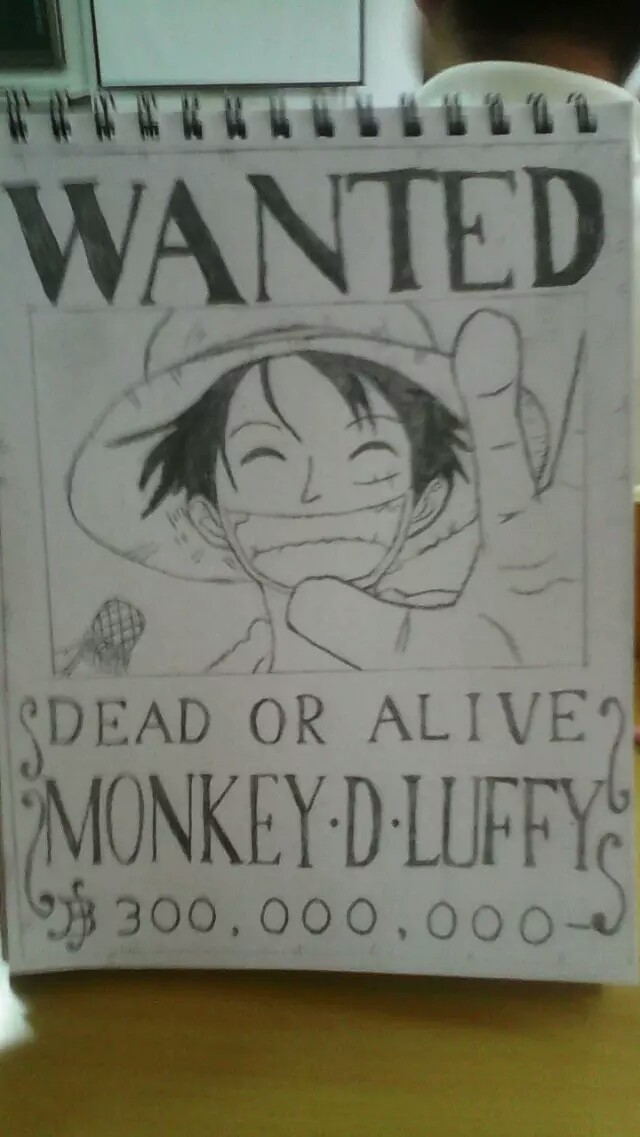 WANTED
DEAD OR ALIVE
MONKEY·D·LUFFY
฿ 300,000,000-